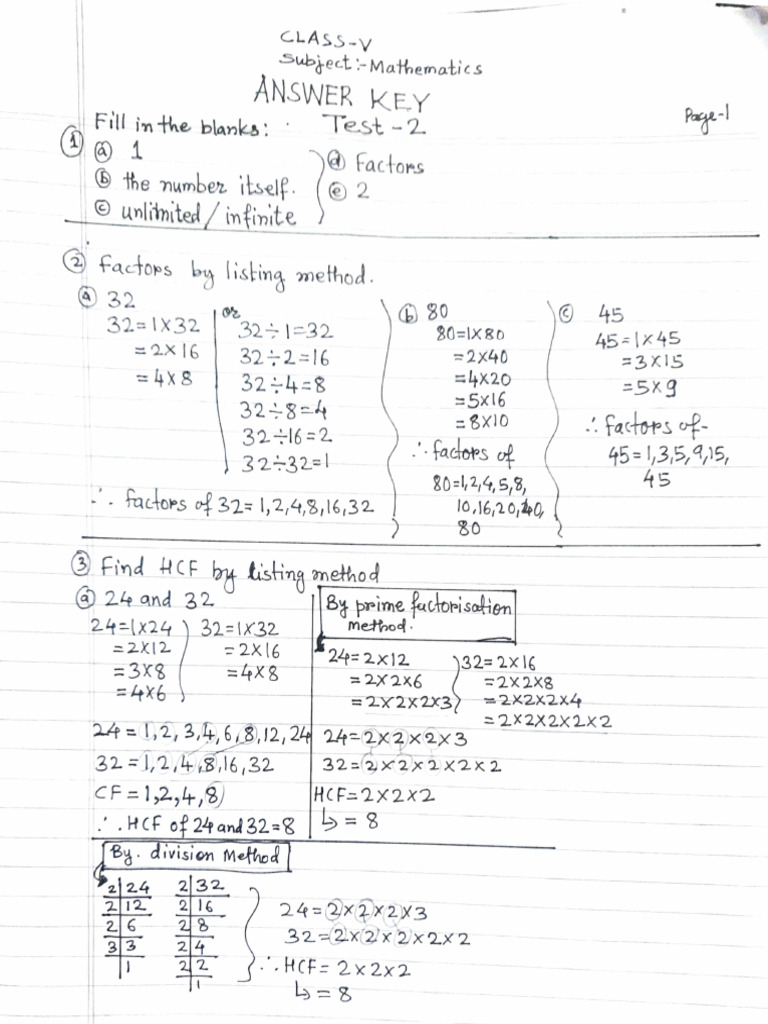 CLASS-V
Subject:-Mathematics
ANSWER KEY
Page-1
Test-2
① Fill in the blanks:
ⓐ 1
ⓑ the number itself.
ⓒ unlimited/infinite
ⓓ Factors
ⓔ 2
② Factors by listing method.
ⓐ 32
32=1×32
=2×16
=4×8
or
32÷1=32
32÷2=16
32÷4=8
32÷8=4
32÷16=2
32÷32=1
∴ factors of 32=1,2,4,8,16,32
ⓑ 80
80=1×80
=2×40
=4×20
=5×16
=8×10
∴ factors of
80=1,2,4,5,8,
10,16,20,40,
80
ⓒ 45
45=1×45
=3×15
=5×9
∴ factors of-
45=1,3,5,9,15,
45
③ Find HCF by listing method
ⓐ 24 and 32
24=1×24
=2×12
=3×8
=4×6
32=1×32
=2×16
=4×8
24=1,2,3,4,6,8,12,24
32=1,2,4,8,16,32
CF=1,2,4,8
∴ HCF of 24 and 32=8
By prime factorisation
method.
24=2×12
=2×2×6
=2×2×2×3
32=2×16
=2×2×8
=2×2×2×4
=2×2×2×2×2
24=2×2×2×3
32=2×2×2×2×2
HCF=2×2×2
↳ =8
By. division Method
2|24
2|12
2|6
3|3
|1
2|32
2|16
2|8
2|4
2|2
|1
24=2×2×2×3
32=2×2×2×2×2
∴ HCF=2×2×2
↳ =8